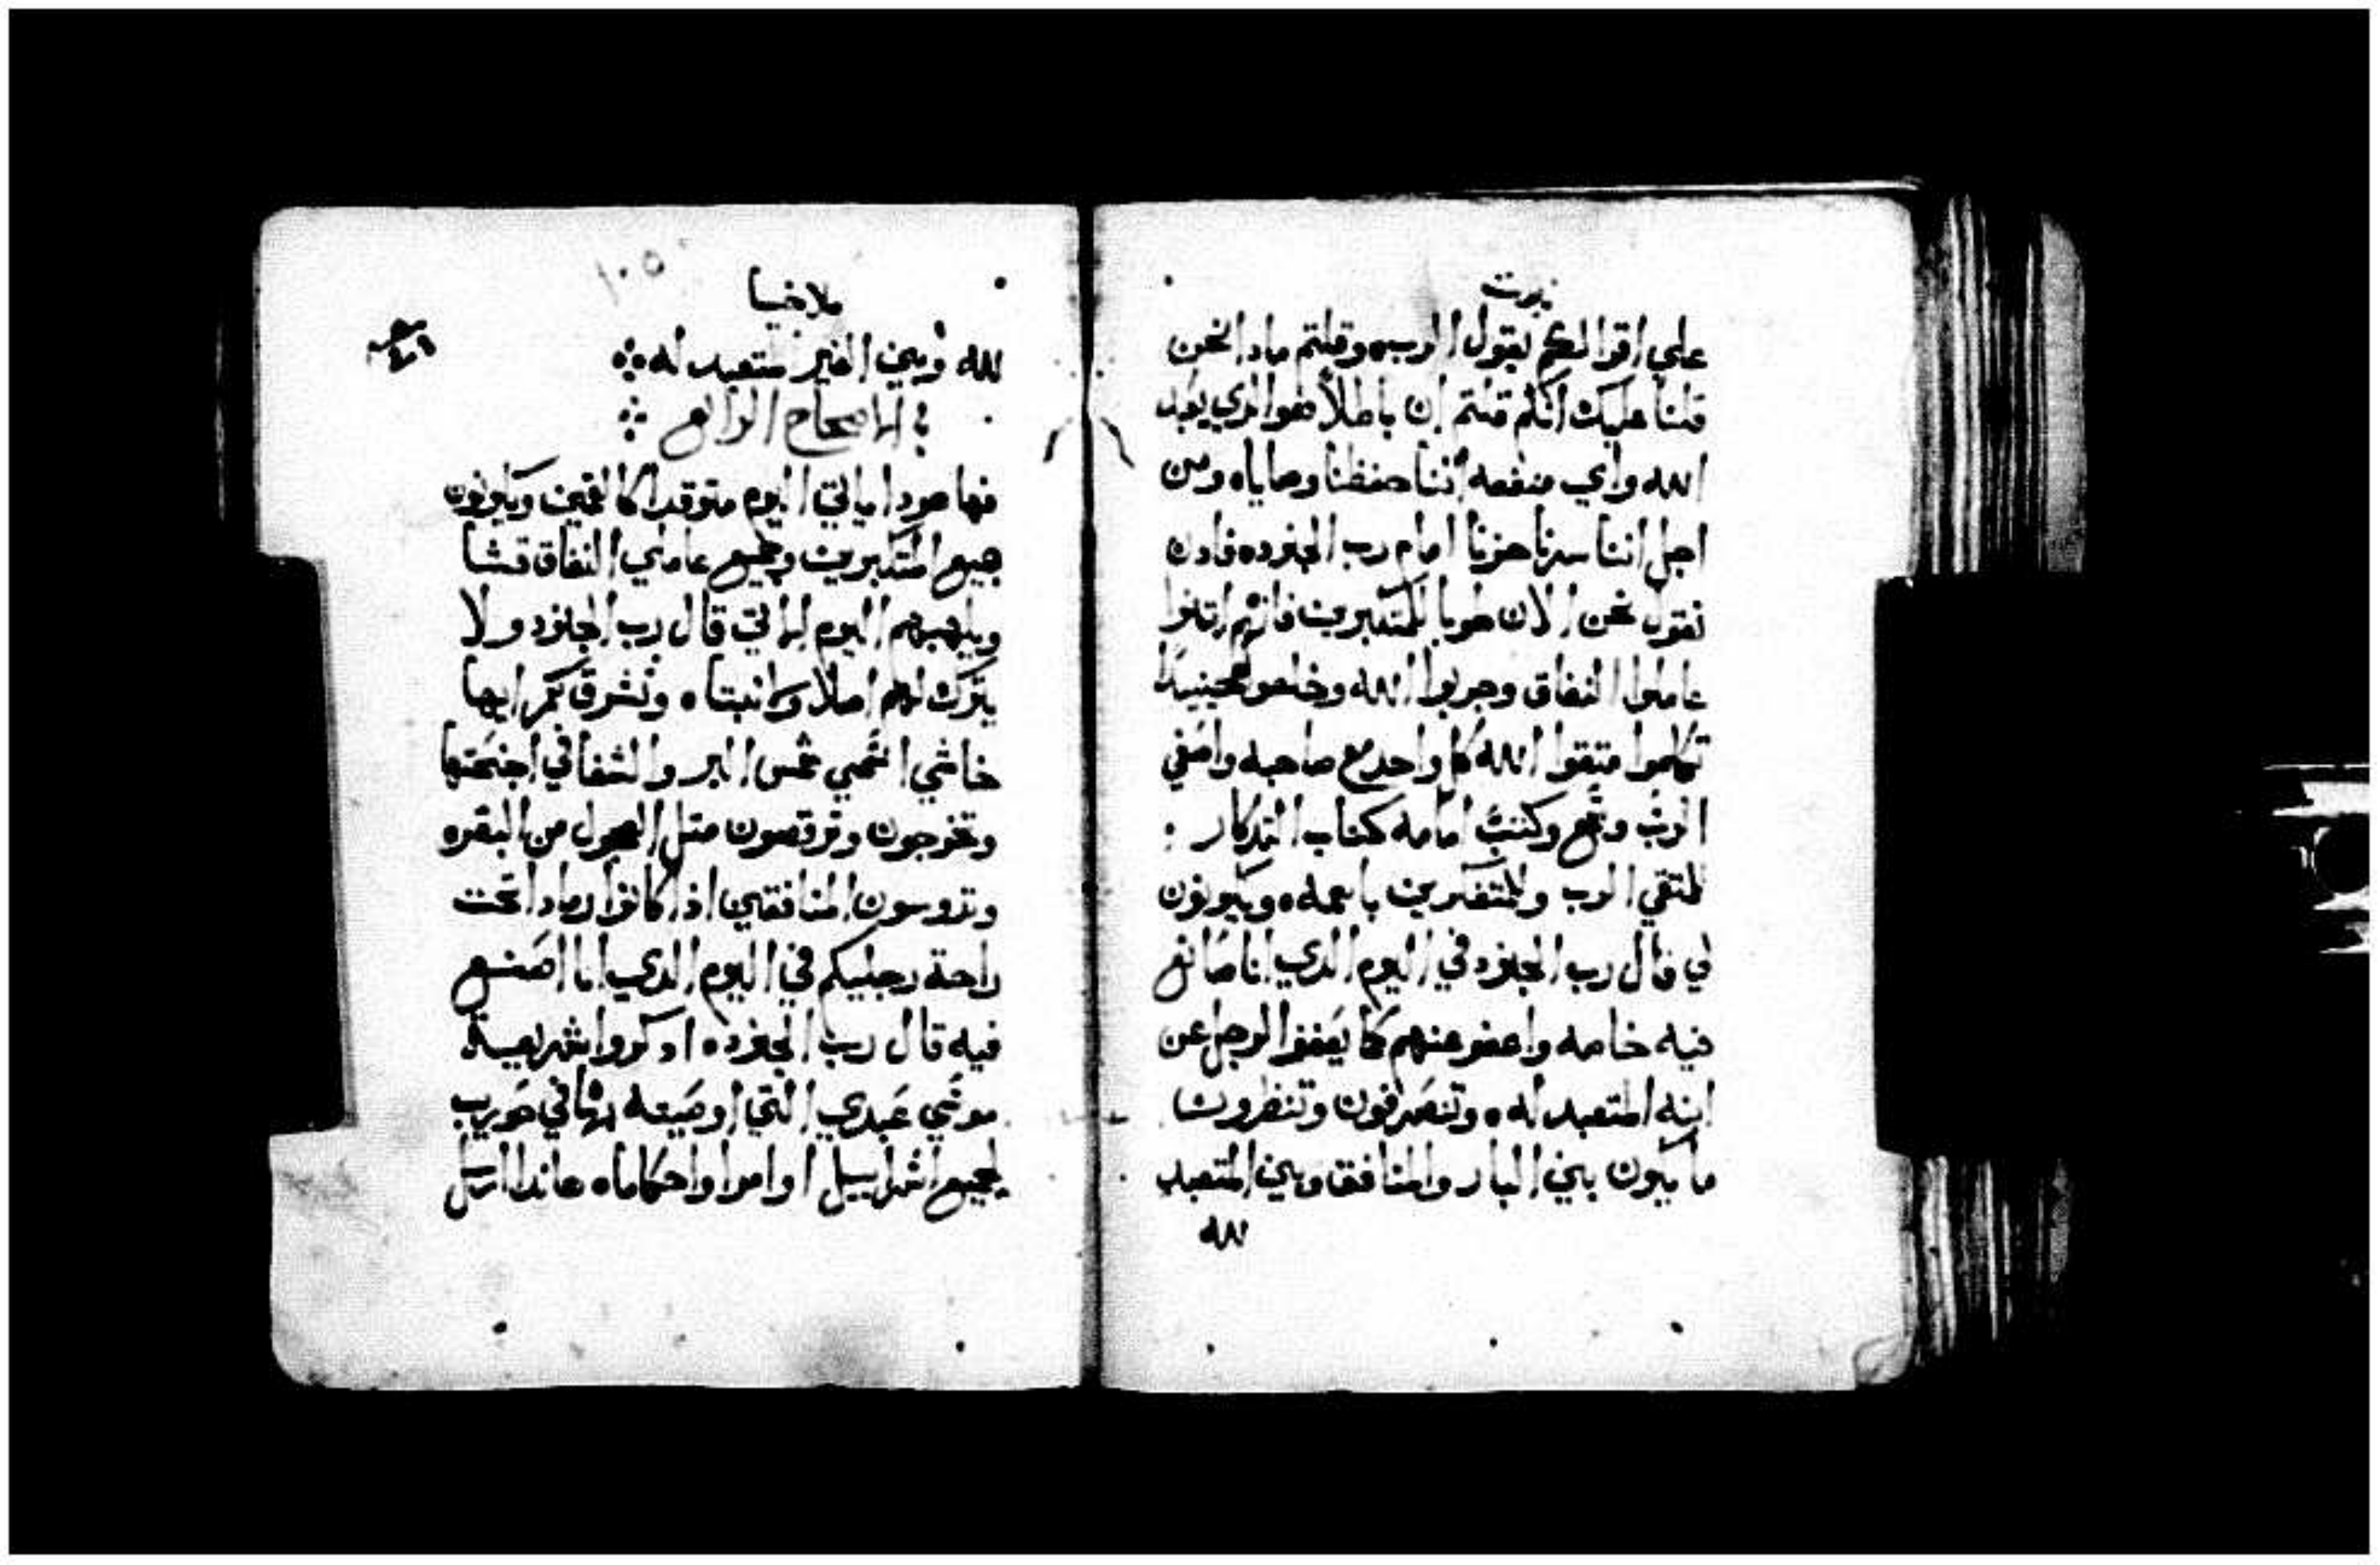 نبوت
علي اقوالكم يقول الرب وقلتم مادا نحن
قلنا عليك انكم قلتم ان باطلاً هو الدي يعبد
الله واي منفعه اننا حفظنا وصاياه ومن
اجل اننا سرنا حزنا امام رب الجنوده فادن
نقول نحن الان طوبا للمتكبرين فانهم ابتنوا
عاملوا النفاق وجربوا الله وخلصوا حينيدا
تكلموا متقوا الله كل واحد مع صاحبه واصغي
الرب وسمع وكتب امامه كتاب التدكار :
لمتقي الرب والمتفكرين باسمه ٥ ويكونون
لي قال رب الجنود في اليوم الدي انا صانع
فيه خاصه واعفو عنهم كما يعفوا الرجل عن
ابنه المتعبد له ٥ وتنصرفون وتنظرون
ما يكون بين البار والمنافق وبين المتعبد
لله
١٠٥
ملاخيا
لله وبين الغير متعبد له
في الاصحاح الرابع
فها هودا ياتي اليوم متوقدا كالقمين ويكونون
جميع المتكبرين وجميع عاملي النفاق قشا
ويلهبهم اليوم الاتي قال رب الجنود ولا
يترك لهم اصلا ولا نبتا ٥ وتشرق لكم ايها
خاشي اسمي شمس البر والشفا في اجنحتها
وتخرجون وترقصون متل العجول من البقره
وتدوسون المنافقين اذا كانوا رمادا تحت
راحة رجليكم في اليوم الدي انا اصنع
فيه قال رب الجنوده ادكروا شريعة
موسي عبدي التي اوصيته بها في حوريب
لجميع اسراييل اوامرا واحكاما ٥ هاندا ارسل